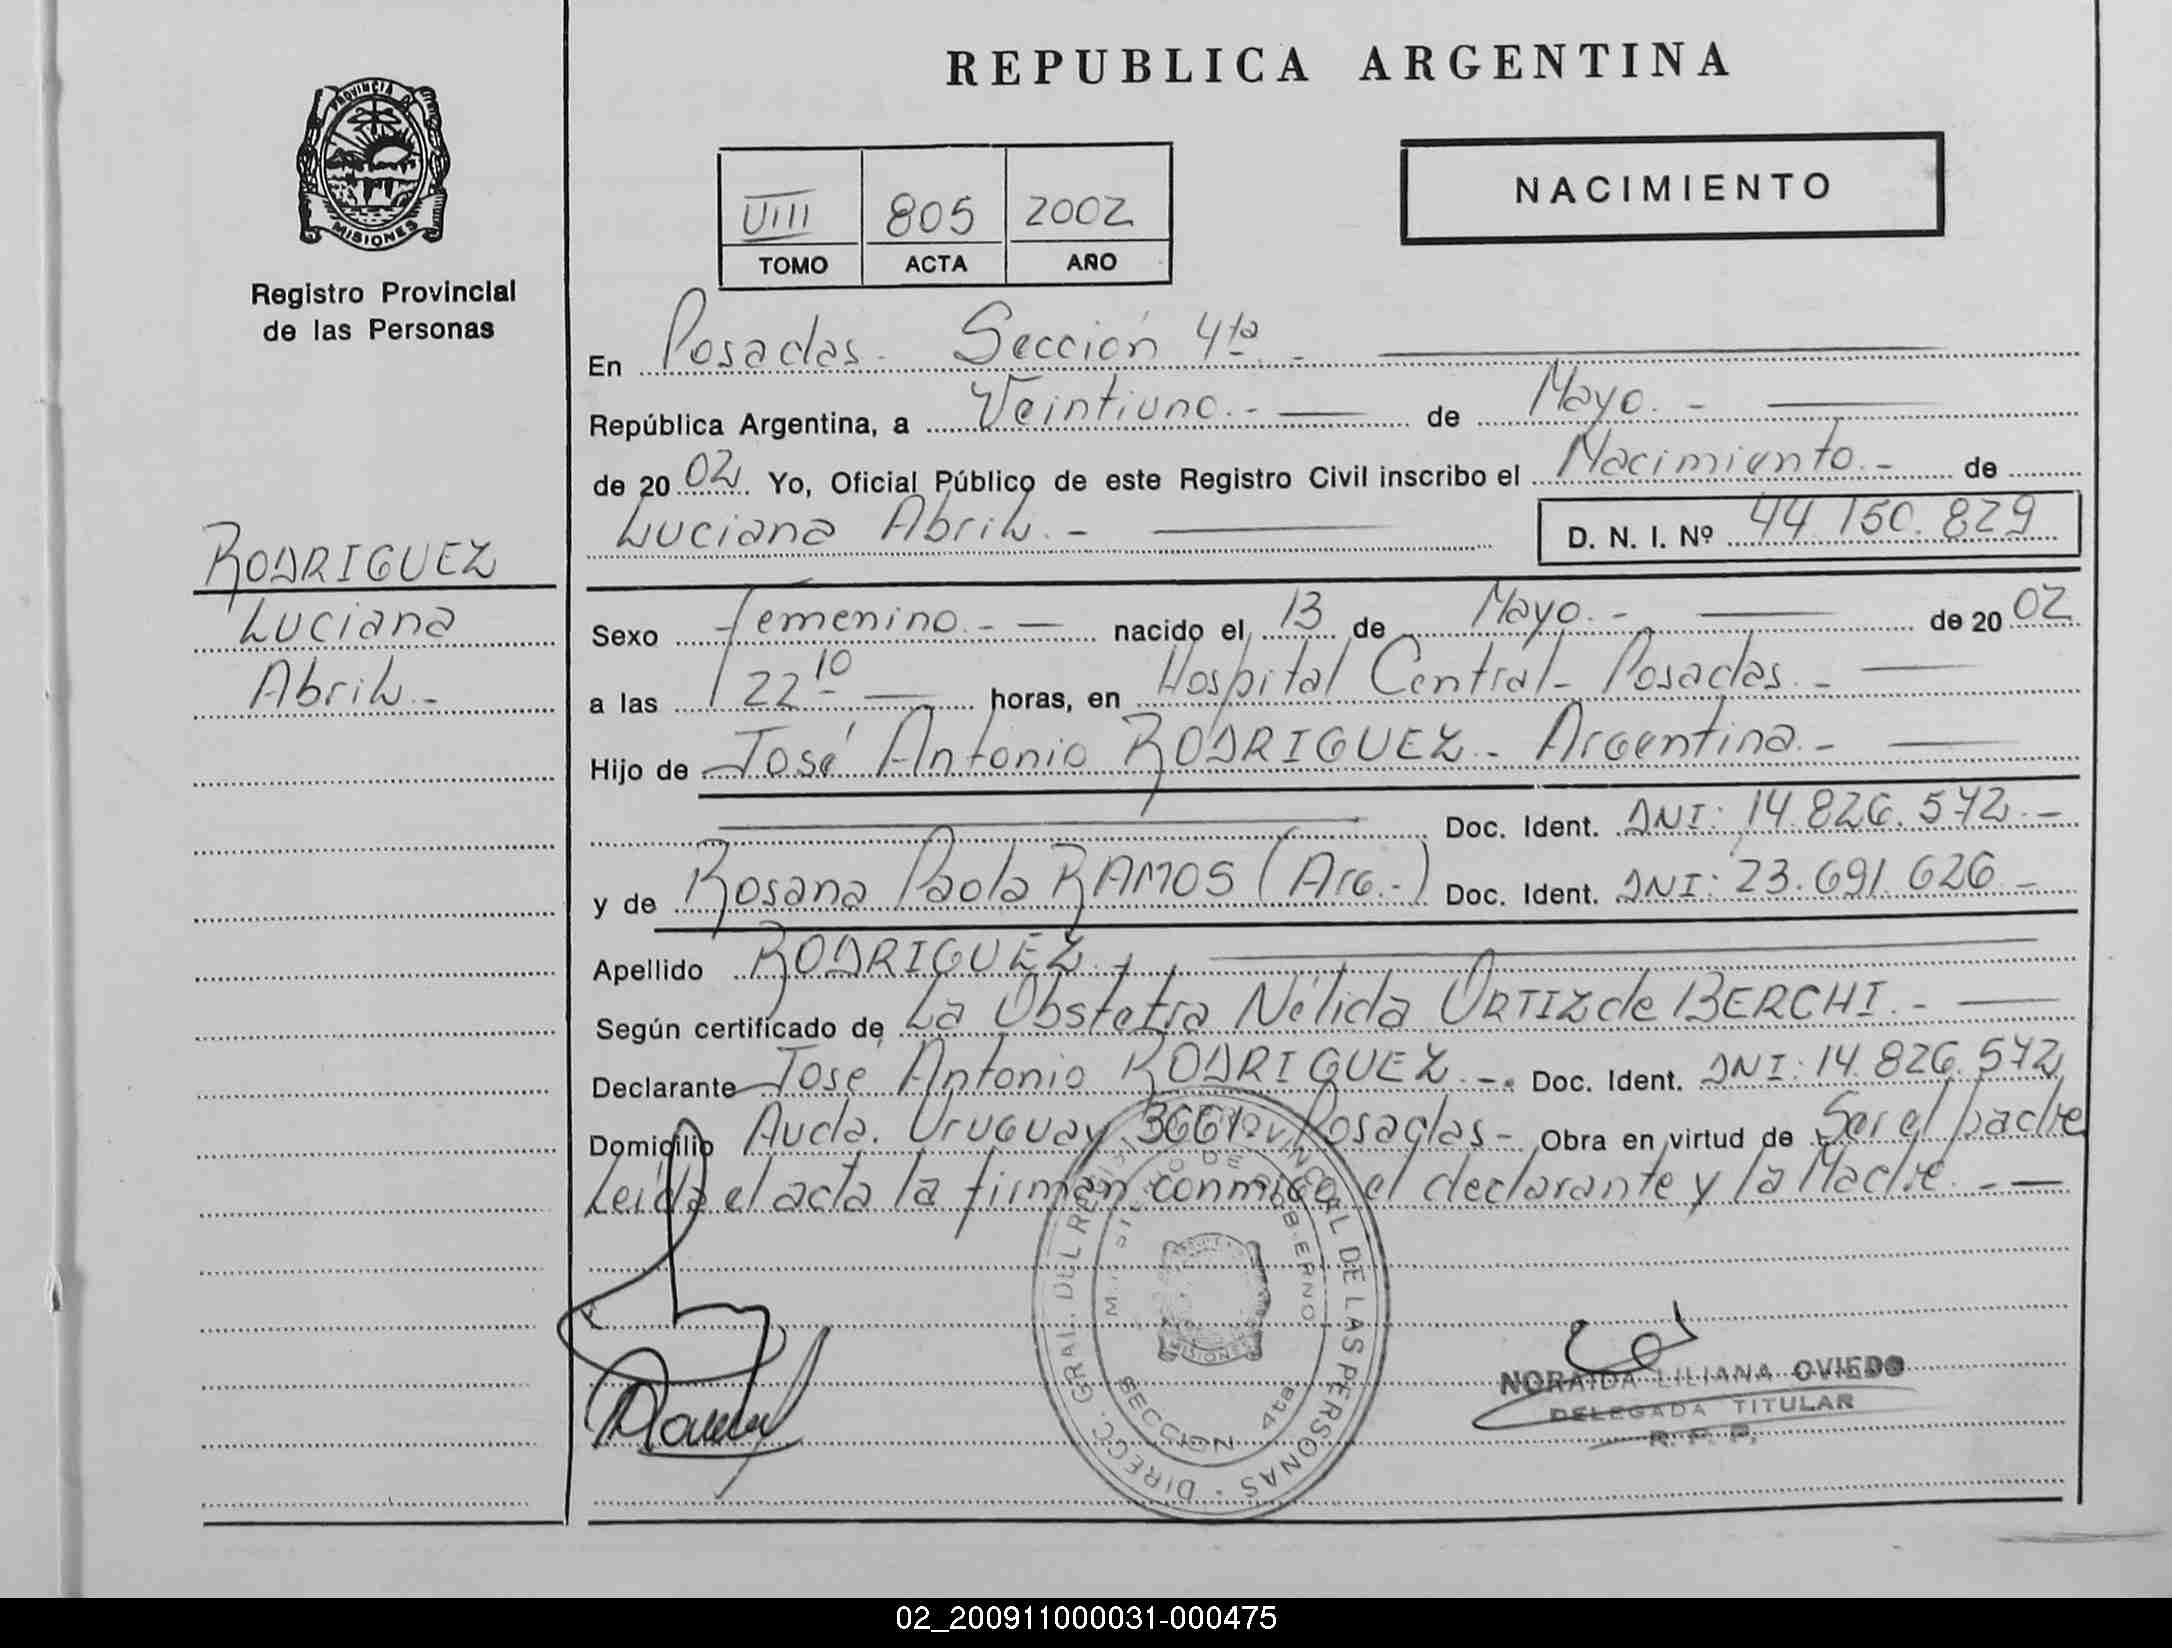 REPUBLICA ARGENTINA
PROVINCIA DE
MISIONES
Registro Provincial
de las Personas
VIII 805 2002
TOMO ACTA AÑO
NACIMIENTO
En Posadas. Sección 4ta.-
República Argentina, a Veintiuno.- de Mayo.-
de 2002 Yo, Oficial Público de este Registro Civil inscribo el Nacimiento.- de
Luciana Abril.- D. N. I. Nº 44.150.829
RODRIGUEZ
Luciana
Abril.-
Sexo Femenino.- nacido el 13 de Mayo.- de 2002
a las 22 10 horas, en Hospital Central- Posadas.-
Hijo de José Antonio RODRIGUEZ.- Argentina.-
Doc. Ident. DNI: 14.826.572.-
y de Rosana Paola RAMOS (Arg.-) Doc. Ident. DNI: 23.691.626.-
Apellido RODRIGUEZ.-
Según certificado de La Obstetra Nélida ORTIZ de BERCHI.-
Declarante José Antonio RODRIGUEZ.-. Doc. Ident. DNI: 14.826.572
Domicilio Avda. Uruguay 3661 Posadas- Obra en virtud de Ser el padre
Leída el acta la firman conmigo, el declarante y la Madre.-
DIRECC. GRAL. DEL REGISTRO PROVINCIAL DE LAS PERSONAS
MINISTERIO DE GOBIERNO
MISIONES
SECCION 4ta
NORAIDA LILIANA OVIEDO
DELEGADA TITULAR
R. P. P.
02_200911000031-000475